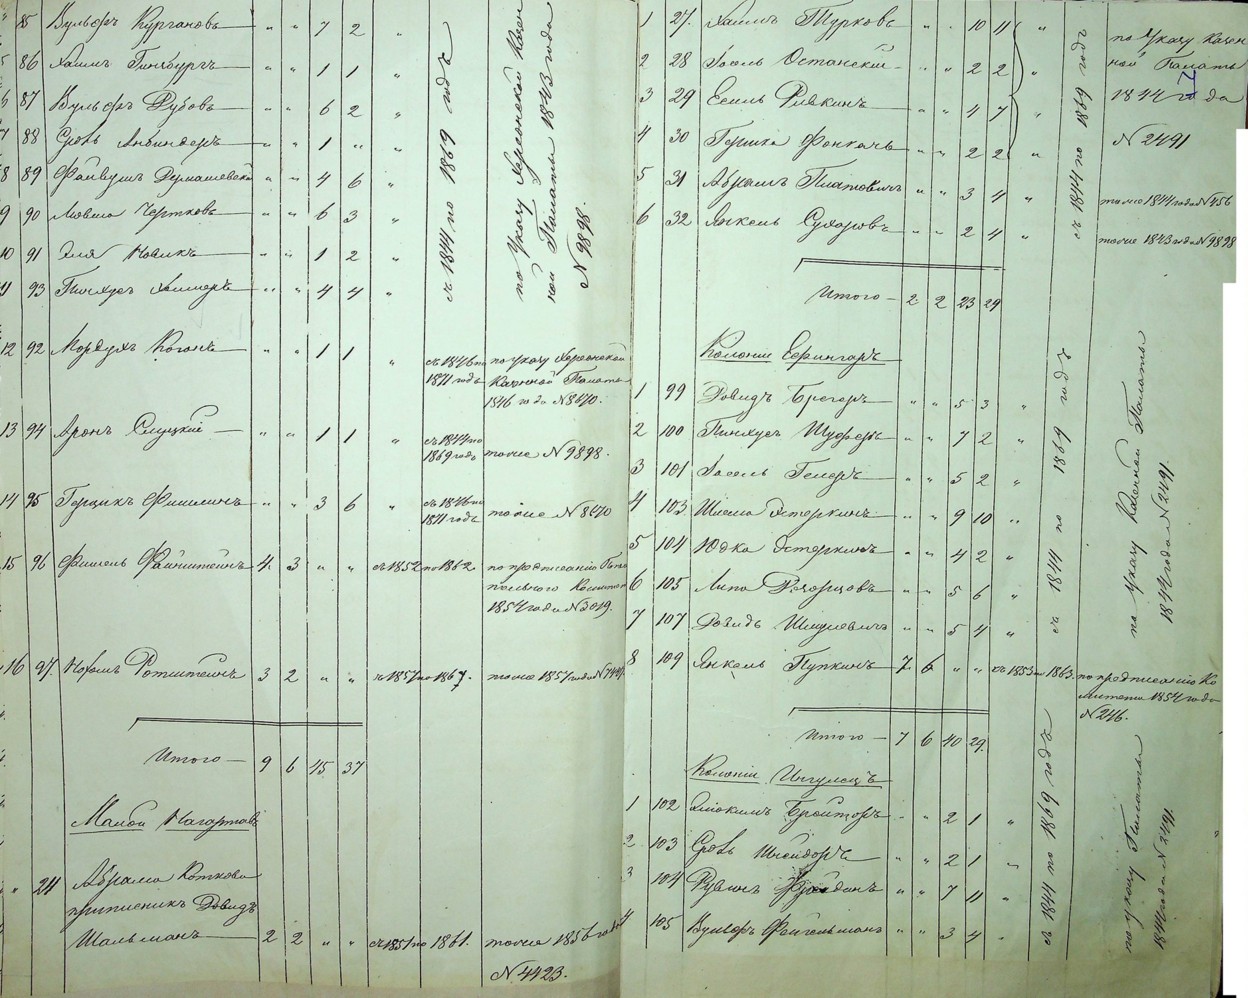 85 Вульфъ Кургановъ " " 7 2 "
86 Хаимъ Гинзбургъ " " 1 1 "
87 Вульфъ Дубовъ " " 6 2 "
88 Сроль " " 1 " "
89 Файвушъ " " 4 6 "
9 90 Чертковъ " " 6 3 "
10 91 Эля Новикъ " " 1 2 "
11 93 Пинхусъ " " 4 4 "
съ 1844 по 1869 годъ
по Указу Херсонской Казен
ной Палаты 1843 года
N 9898.
12 92 Мордухъ Коганъ " " 1 1 " съ 1846 по 1871 годъ по указу Херсонской
Казенной Палаты
1846 года N 8670.
13 94 Аронъ Слуцкiй " " 1 1 " съ 1844 по 1869 годъ тоже N 9898.
14 95 Герцикъ Фишманъ " " 3 6 " съ 1846 по 1871 годъ тоже N 8670
15 96 Фишель Файнштейнъ 4 3 " " съ 1852 по 1862 по предписанiю
Комитета
1854 года N 3019.
16 97. Нохемъ Ротштейнъ 3 2 " " съ 1857 по 1867. тоже 1857 года
Итого 9 6 45 37
Малой Нагартавъ
" 24 Абрама Коткова
приписникъ Довидъ
Шальманъ 2 2 " " съ 1851 по 1861. тоже 1856 года
N 4423.
1 27. Хаимъ Турковъ " " 10 11 "
2 28 Iосель " " 2 2 "
3 29 Ривкинъ " " 4 7 "
4 30 " " 2 2 "
5 31 Абрамъ " " 3 4 "
6 32 Янкель Сухаровъ " " 2 4 "
съ 1844 по 1869 годъ
по Указу Казен
ной Палаты
1844 года
N 2491
тоже 1844 года N 456
тоже 1843 года N 9898
Итого 2 2 23 29
Колонiи Ефингаръ
1 99 Довидъ Брегеръ " " 5 3 "
2 100 Пинхусъ " " 7 2 "
3 101 Iосель Гелеръ " " 5 2 "
4 103 Шлема Эстеркинъ " " 9 10 "
5 104 Юдка Эстеркинъ " " 4 2 "
6 105 Липа " " 5 6 "
7 107 Довидъ Шмулевичъ " " 5 4 "
съ 1844 по 1869 годъ
по Указу Казенной Палаты
1844 года N 2491.
8 109 Янкель Пупкинъ 7 6 " " съ 1853 по 1863. по предписанiю Ко
митета 1854 года
N 246.
Итого 7 6 40 29.
Колонiи Ингулецъ
1 102 " " 2 1 "
2 103 Сроль " " 2 1 "
3 104 Рувинъ " " 7 11 "
4 105 Вульфъ Фейгельманъ " " 3 4 "
съ 1844 по 1869 годъ
по указу Палаты
1844 года N 2491.